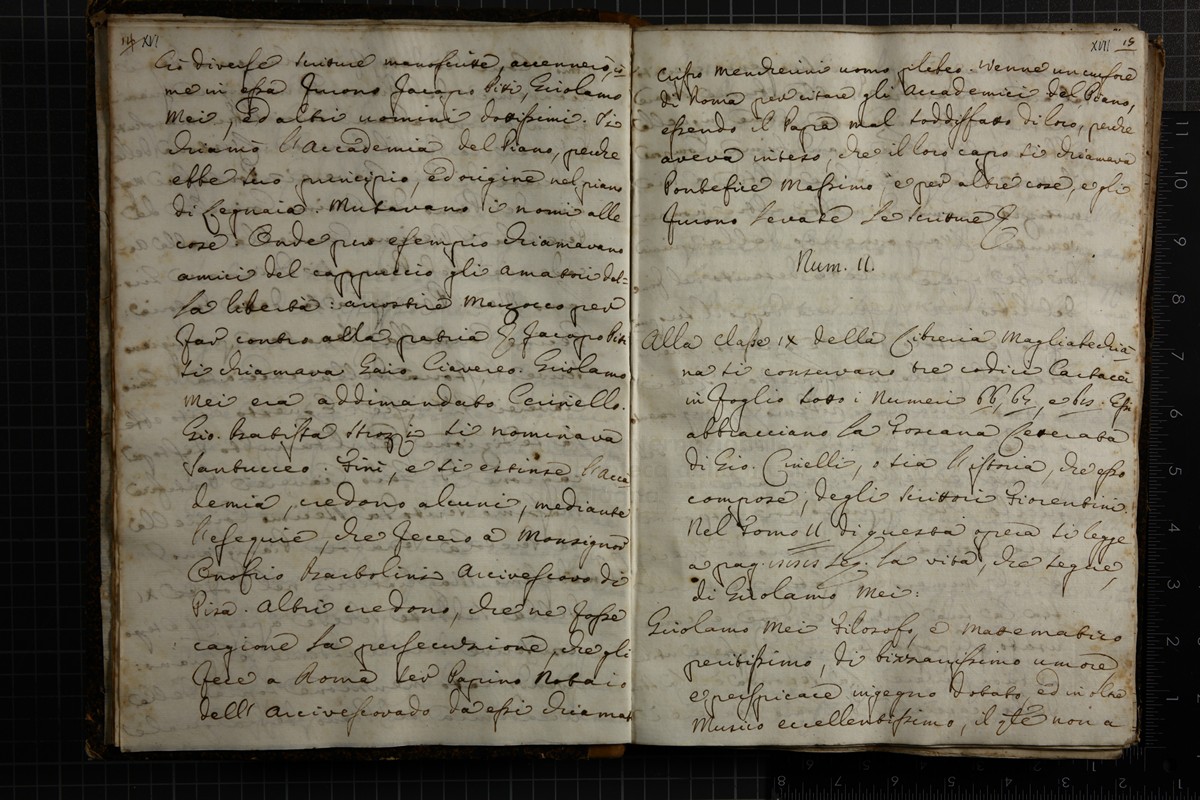 14 XVI
Gio diverse scritture manoscritte, accennerò, co
me in essa furono Jacopo Piti, Girolamo
Mei, Ed altri uomini dottissimi. Si
chiamò l'Accademia del Piano, perche
ebbe suo principio, ed origine nel piano
di Legnaia. Mutavano i nomi alle
cose. Onde per esempio chiamavano
amici del cappuccio gli amatori del=
la libertà: arrostire Marzocco per
far contro alla patria &. Jacopo Piti
si chiamava Gaio Ciavereo. Girolamo
Mei era addimandato Decinello.
Gio. Batista Strozzi si nominava
Santucceo. Finì, e si estinse l'Acca
demia, credono alcuni, mediante
l'esequie, che fecero a Monsignor
Onofrio Bartolini Arcivescovo di
Pisa. Altri credono, che ne fosse
cagione la persecuzione, che gli
fece a Roma Ser Papino Notaio
dell'Arcivescovado da essi chiamat
XVII 15
Cristo Mendicini uomo plebeo. Venne un cursore
di Roma per citare gli Accademici del Piano,
essendo il Papa mal soddisfatto di loro, perche
aveva inteso, che il loro capo si chiamava
Pontefice Massimo e per altre cose, e gli
furono levate le scritture &
Num. II.
Alla classe IX della Libreria Magliabechia
na si conservano tre codici cartacei
in foglio sotto i Numeri 66, 67, e 68. Essi
abbracciano la Toscana Letterata
di Gio. Cinelli, o sia l'istoria, che esso
compose, degli scrittori Fiorentini.
Nel Tomo II di questa opera si legge
a pag. seg. la vita, che segue,
di Girolamo Mei:
Girolamo Mei Filosofo, e Matematico
peritissimo, di bizzarrissimo umore
e perspicace ingegno dotato, ed in oltre
Musico eccellentissimo, il qte non a